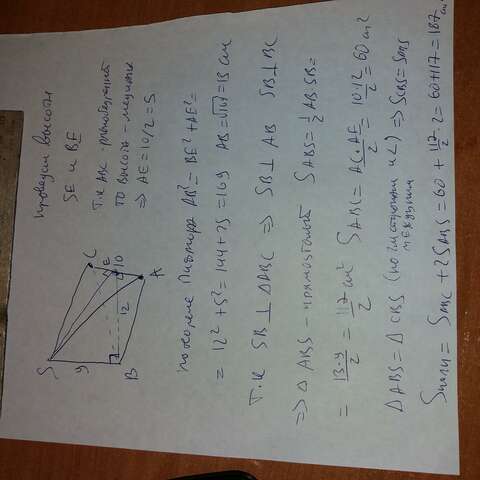 проведем высоты
SE и BE
Т.к ABC - равнобедренный
то высота - медиана
⇒ AE = 10/2 = 5
S
C
E
10
A
12
9
B
по теореме Пифагора AB² = BE² + AE² =
= 12² + 5² = 144 + 25 = 169 AB = √169 = 13 см
Т.к SB ⊥ △ABC ⇒ SB ⊥ AB SB ⊥ BC
⇒ △ ABS - прямоугольный S ABS = ½ AB·SB =
= 13·9/2 = 117/2 см² S ABC = AC·AE/2 = 10·12/2 = 60 см²
△ABS = △CBS (по 2м сторонам и ∠ между ними) ⇒ S CBS = S ABS
S = S + 2S ABS = 60 + 117/2 · 2 = 60+117 = 187 см²